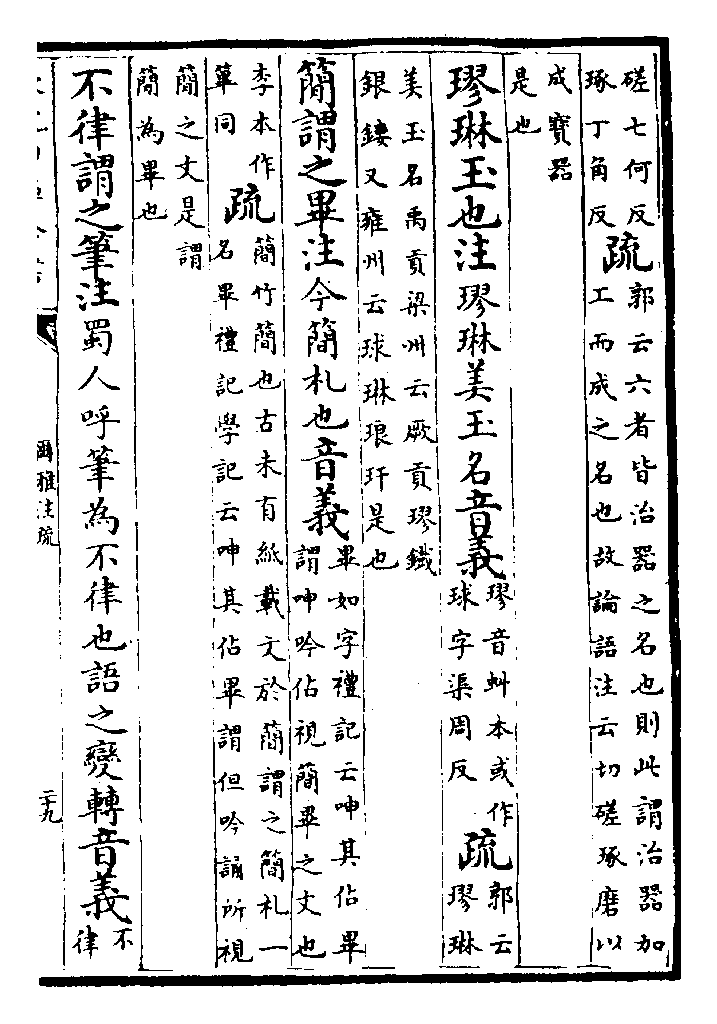 磋七何反
琢丁角反
疏
郭云六者皆治器之名也則此謂治器加
工而成之名也故論語注云切磋琢磨以
成寶器
是也
璆琳玉也注璆琳美玉名音義
璆音虯本或作
球字渠周反
疏
郭云
璆琳
美玉名禹貢梁州云厥貢璆鐵
銀鏤又雍州云球琳琅玕是也
簡謂之畢注今簡札也音義
畢如字禮記云呻其佔畢
謂呻吟佔視簡畢之文也
李本作
篳同
疏
簡竹簡也古未有紙載文於簡謂之簡札一
名畢禮記學記云呻其佔畢謂但吟誦所視
簡之文是謂
簡為畢也
不律謂之筆注蜀人呼筆為不律也語之變轉音義
不
律
爾雅注疏
二十九